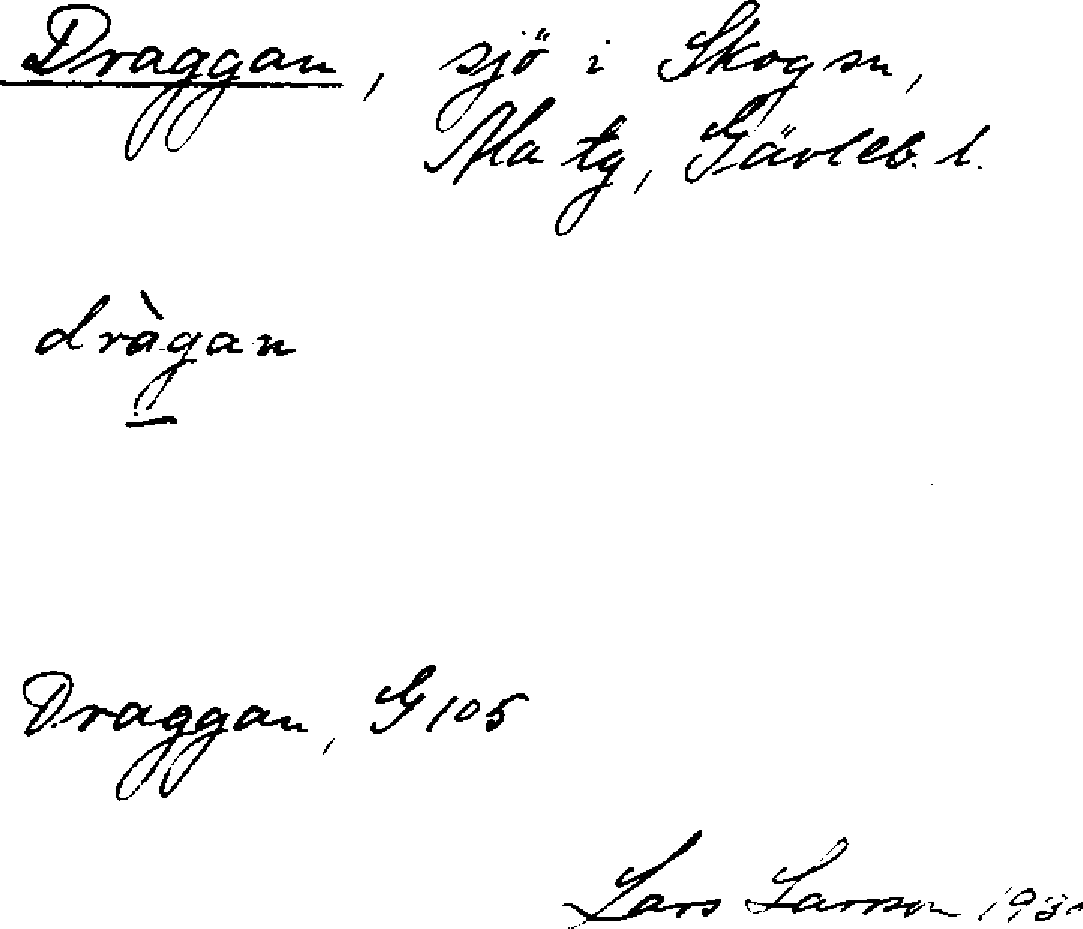 Draggan, sjö i Skog sn,
Ala tg, Gävleb. l.
dràgan
Draggan, G 105
Lars Larsson